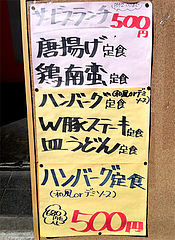 サービスランチ 500円
唐揚げ定食
鶏南蛮定食
ハンバーグ定食(和風orデミソース)
W豚ステーキ定食
皿うどん定食
ハンバーグ定食
(和風orデミソース)
500円